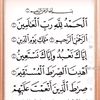 بِسْمِ ٱللَّهِ ٱلرَّحْمَٰنِ ٱلرَّحِيمِ
ٱلْحَمْدُ لِلَّهِ رَبِّ ٱلْعَٰلَمِينَ
ٱلرَّحْمَٰنِ ٱلرَّحِيمِ مَٰلِكِ يَوْمِ ٱلدِّينِ
إِيَّاكَ نَعْبُدُ وَإِيَّاكَ نَسْتَعِينُ
ٱهْدِنَا ٱلصِّرَٰطَ ٱلْمُسْتَقِيمَ
صِرَٰطَ ٱلَّذِينَ أَنْعَمْتَ عَلَيْهِمْ